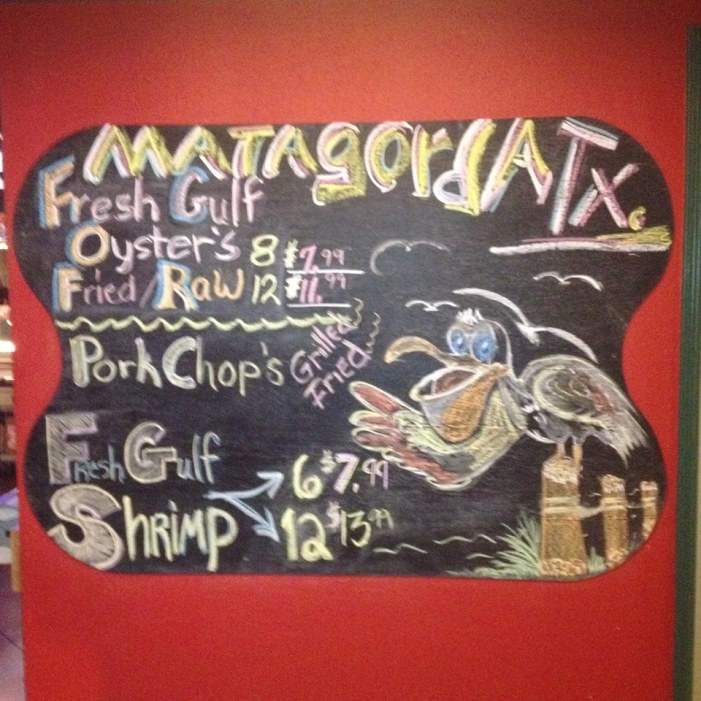 MATAgordA Tx.
Fresh Gulf
Oyster's 8 $7.99
Fried/Raw 12 $11.99
Pork Chop's Grilled
Fried
Fresh Gulf
Shrimp 6 $7.99
12 $13.99